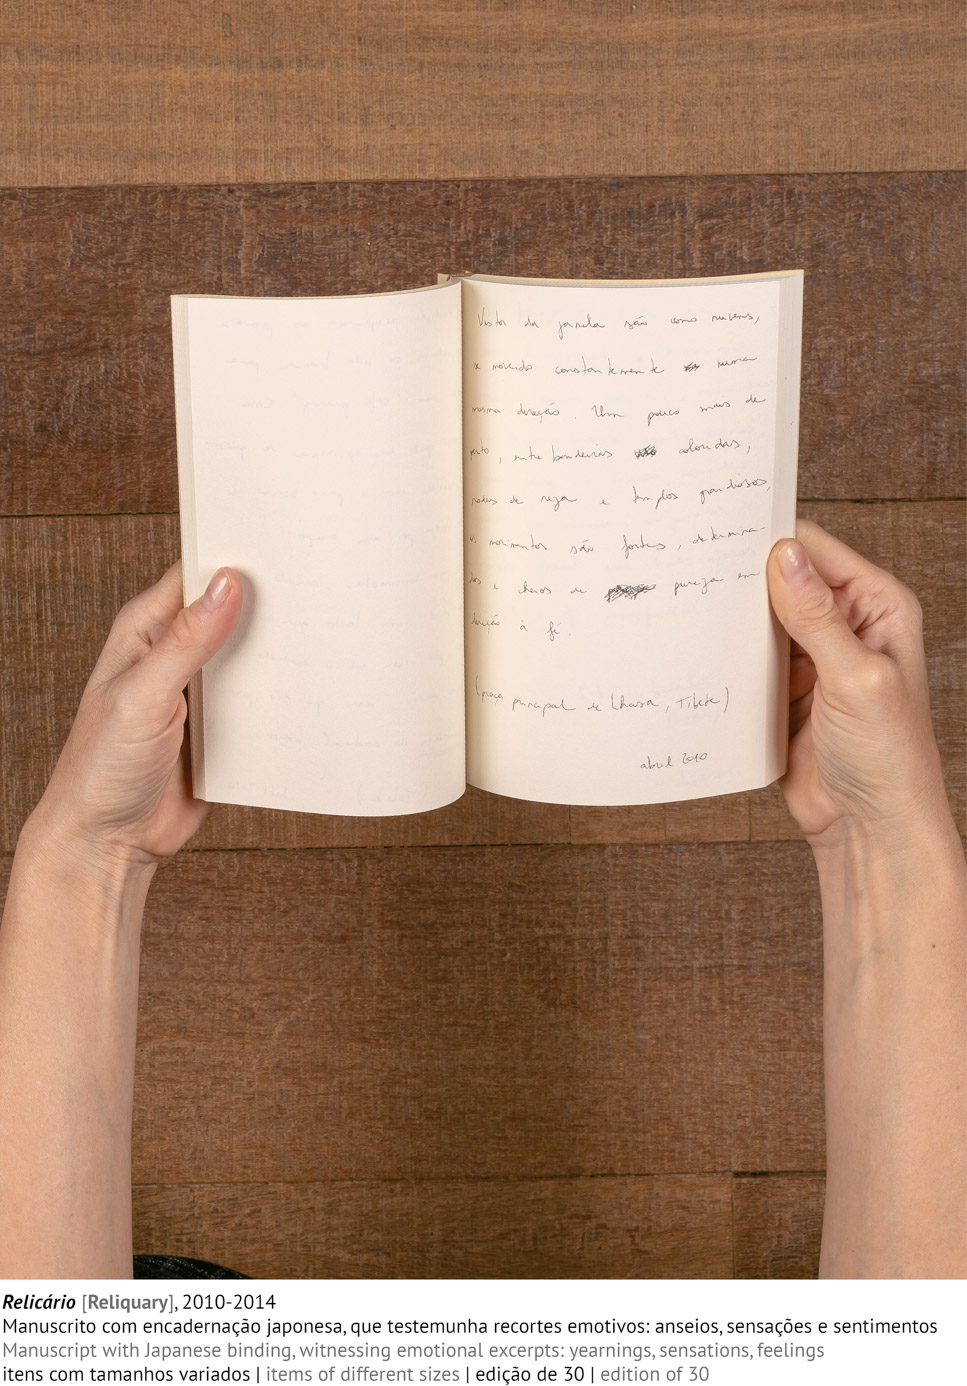 Vistos da janela são como nuvens,
se movendo constantemente numa
mesma direção. Um pouco mais de
perto, entre bandeiras coloridas,
rodas de reza e templos grandiosos,
os movimentos são fortes, determina-
dos e cheios de pureza em
direção à fé.
(praça principal de Lhasa, Tibete)
abril 2010
Relicário [Reliquary], 2010-2014
Manuscrito com encadernação japonesa, que testemunha recortes emotivos: anseios, sensações e sentimentos
Manuscript with Japanese binding, witnessing emotional excerpts: yearnings, sensations, feelings
itens com tamanhos variados | items of different sizes | edição de 30 | edition of 30